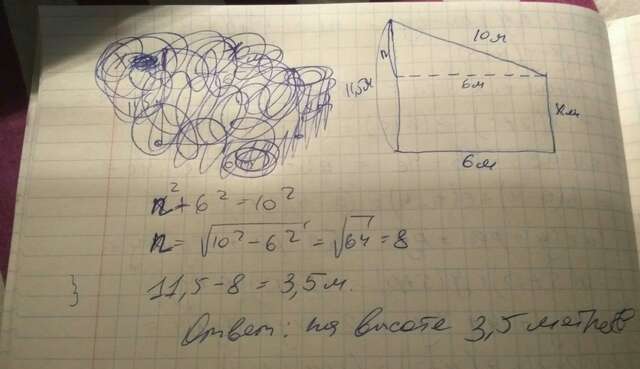 10м
n
11,5м
6м
xм
6м
n² + 6² = 10²
n = √10² - 6² = √64 = 8
11,5 - 8 = 3,5 м.
Ответ: на высоте 3,5 метров